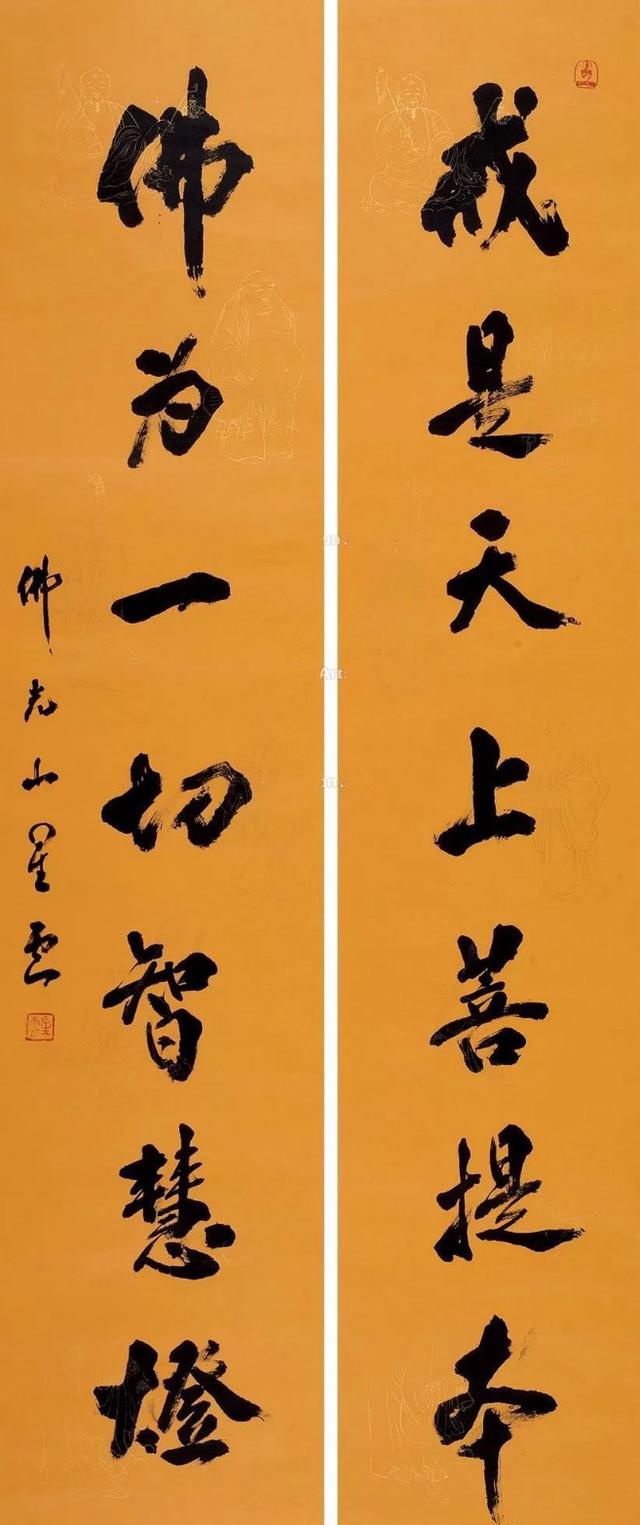 戒是无上菩提本
佛为一切智慧燈
佛光山星雲